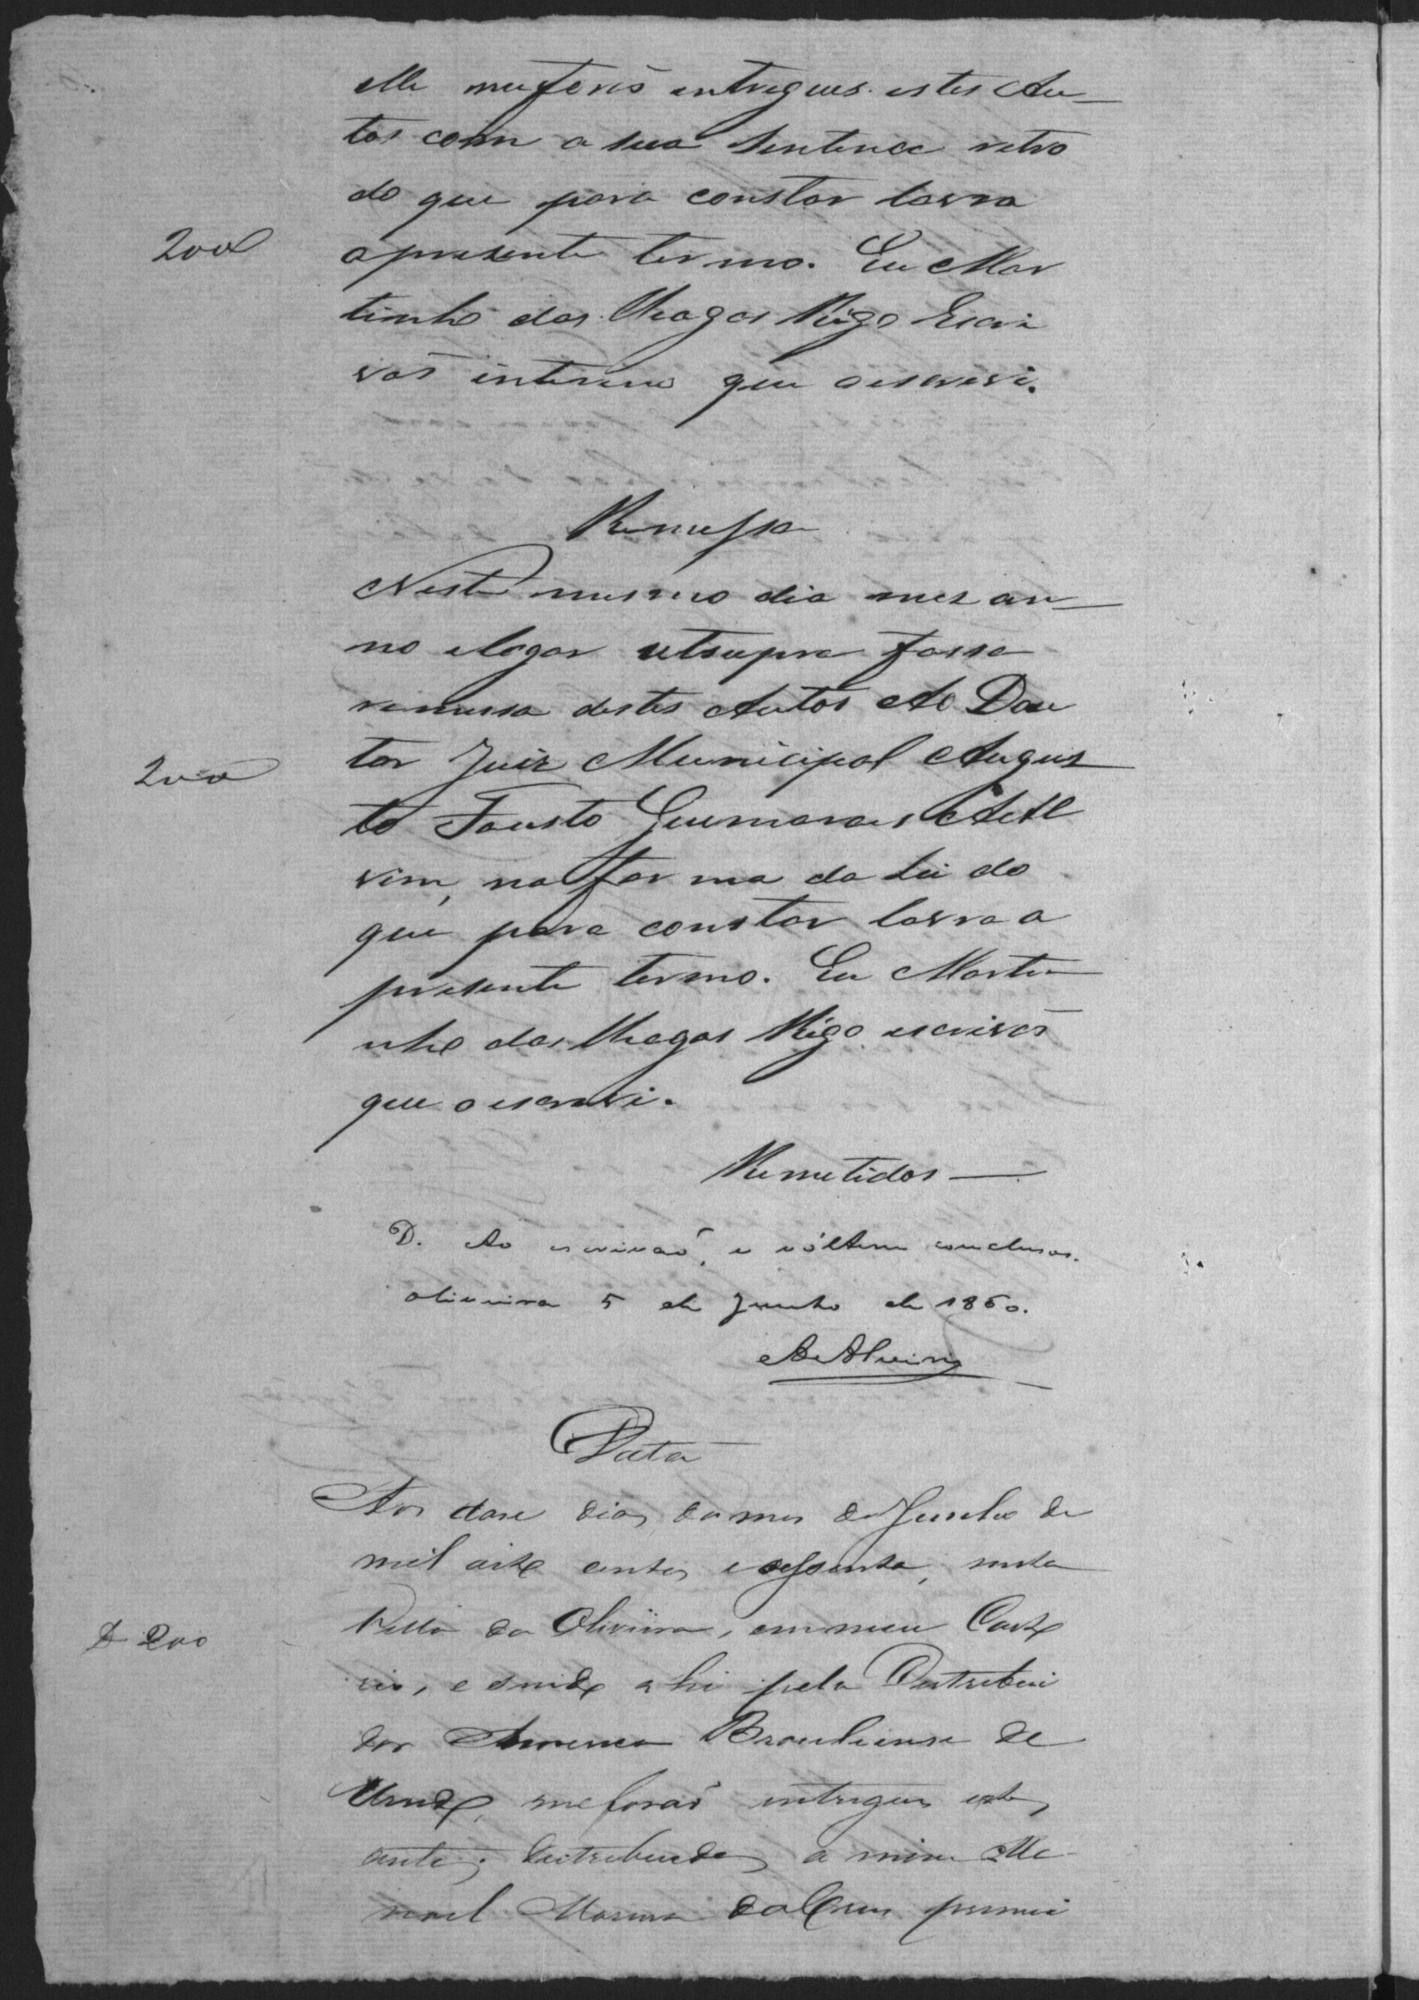 elle me forão entregues estes Au-
tos com a sua Sentença retro
do que para constar lavro
200
o presente termo. Eu Mar
tinho das Chagas Rigo Escri
vão interino que o escrevi.
Remessa
Neste mesmo dia mez an-
no e logar utsupra fasso
remessa destes Autos Ao Dou
200
tor Juiz Municipal Augus
to Fausto Guimaraes Al
vim, na for ma da Lei do
que para constar lavro o
presente termo. Eu Marti
nho das Chagas Rigo escrivão
que o escrevi.
Remetidos
D. Ao escrivão, e vóltem conclusos.
Oliveira 5 de Junho de 1860.
Alvim
Data
Aos dose dias do mes de Junho de
mil oito centos e sessenta, nesta
Villa da Oliveira, em meu Carto
D 200
rio, e sendo ahi pelo Destribui
dor Americo Brasiliense de
me forão entregues estes
autos destribuidos a mim Ma
noel da Cruz primei